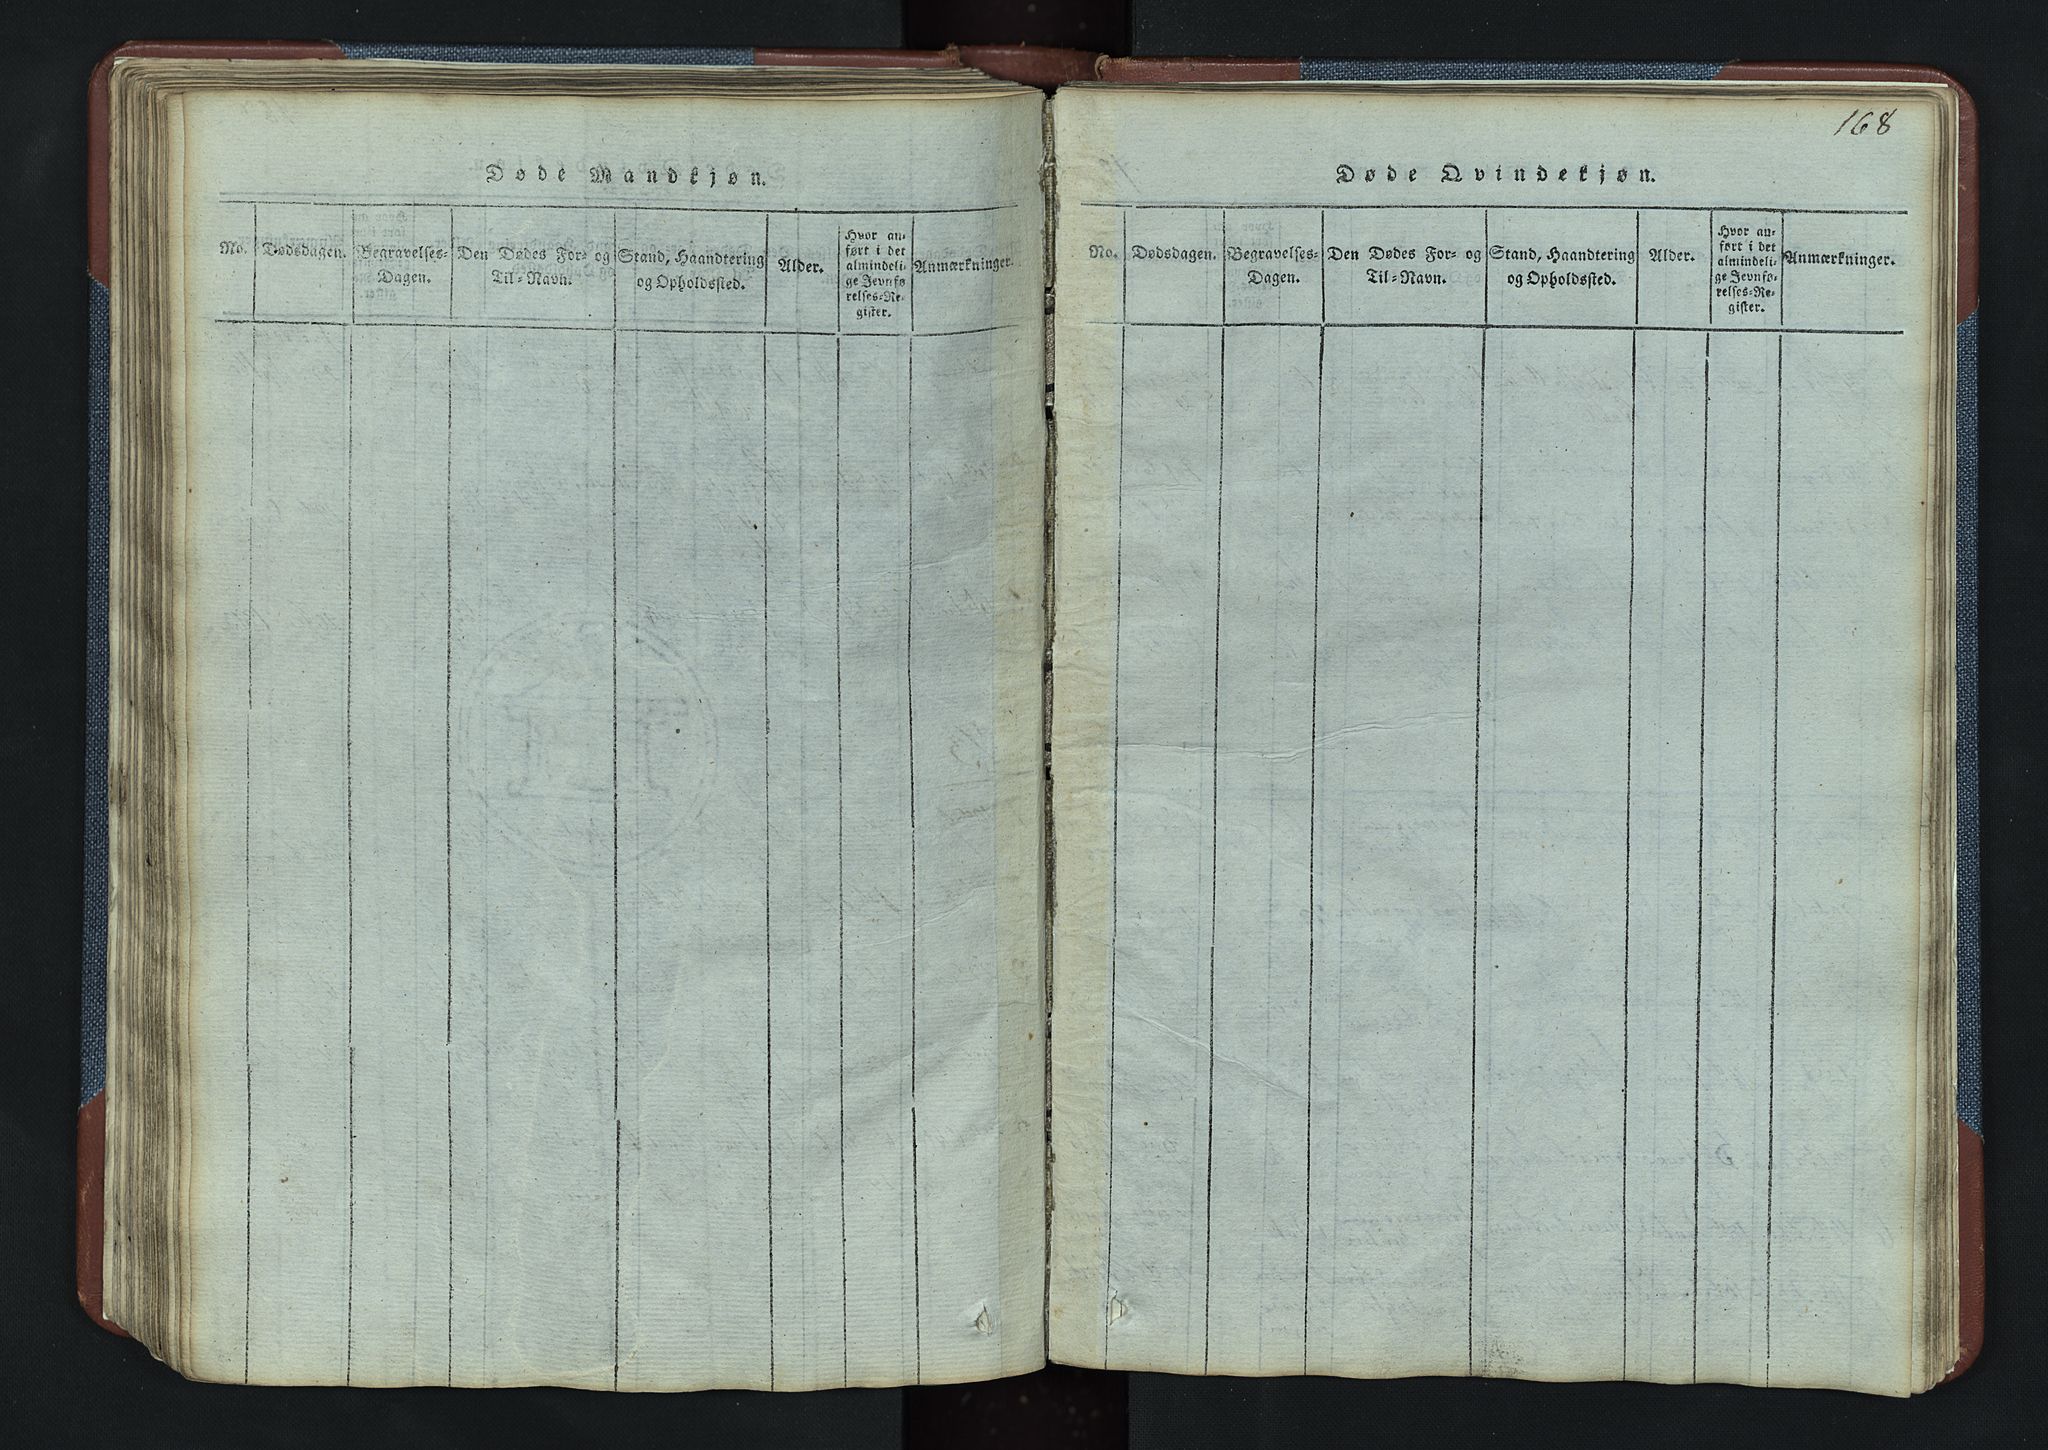 Døde Mandkjøn.
No.
Dødsdagen.
Begravelses-
Dagen.
Den Dødes For- og
Til-Navn.
Stand, Haandtering
og Opholdssted.
Alder.
Hvor an-
ført i det
almindeli-
ge Jevnfø-
relses-Re-
gister.
Anmærkninger.
168
Døde Qvindekjøn.
No.
Dødsdagen.
Begravelses-
Dagen.
Den Dødes For- og
Til-Navn.
Stand, Haandtering
og Opholdssted.
Alder.
Hvor an-
ført i det
almindeli-
ge Jevnfø-
relses-Re-
gister.
Anmærkninger.